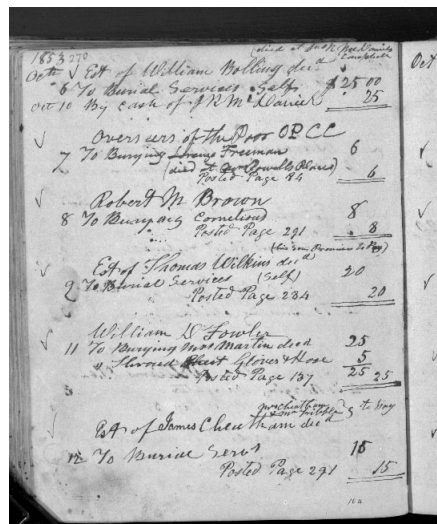 1853 270
(died at
Octr √ Est of William Bolling decd
6 To Burial Services Self $25 00
Oct 10 By cash of McDaniel 25
Overseers of the Poor O.P.C.C
7 To Burying Freeman 6
(died at
Posted Page 84 6
Robert M Brown
8 To Burying Cornelious 8
Posted Page 291 8
(his son Promises to Pay)
Est of Thomas Wilkins decd
9 To Burial Services (Self) 20
Posted Page 234 20
William D Fowler
11 To Burying Mrs Martin died 25
" Shroud Gloves & Hose 5
Posted Page 137 25 25
to Pay
Est of James Cheatham decd
12 To Burial Servs 15
Posted Page 291 15
Oct